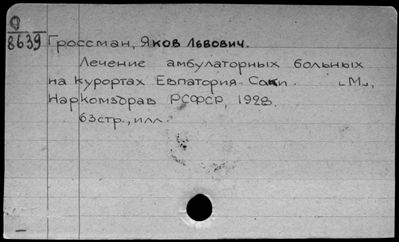 О
8639
Гроссман, Яков Львович.
Лечение амбулаторных больных
на курортах Евпатория-Саки. [М],
Наркомздрав РСФСР, 1928.
63стр., илл.